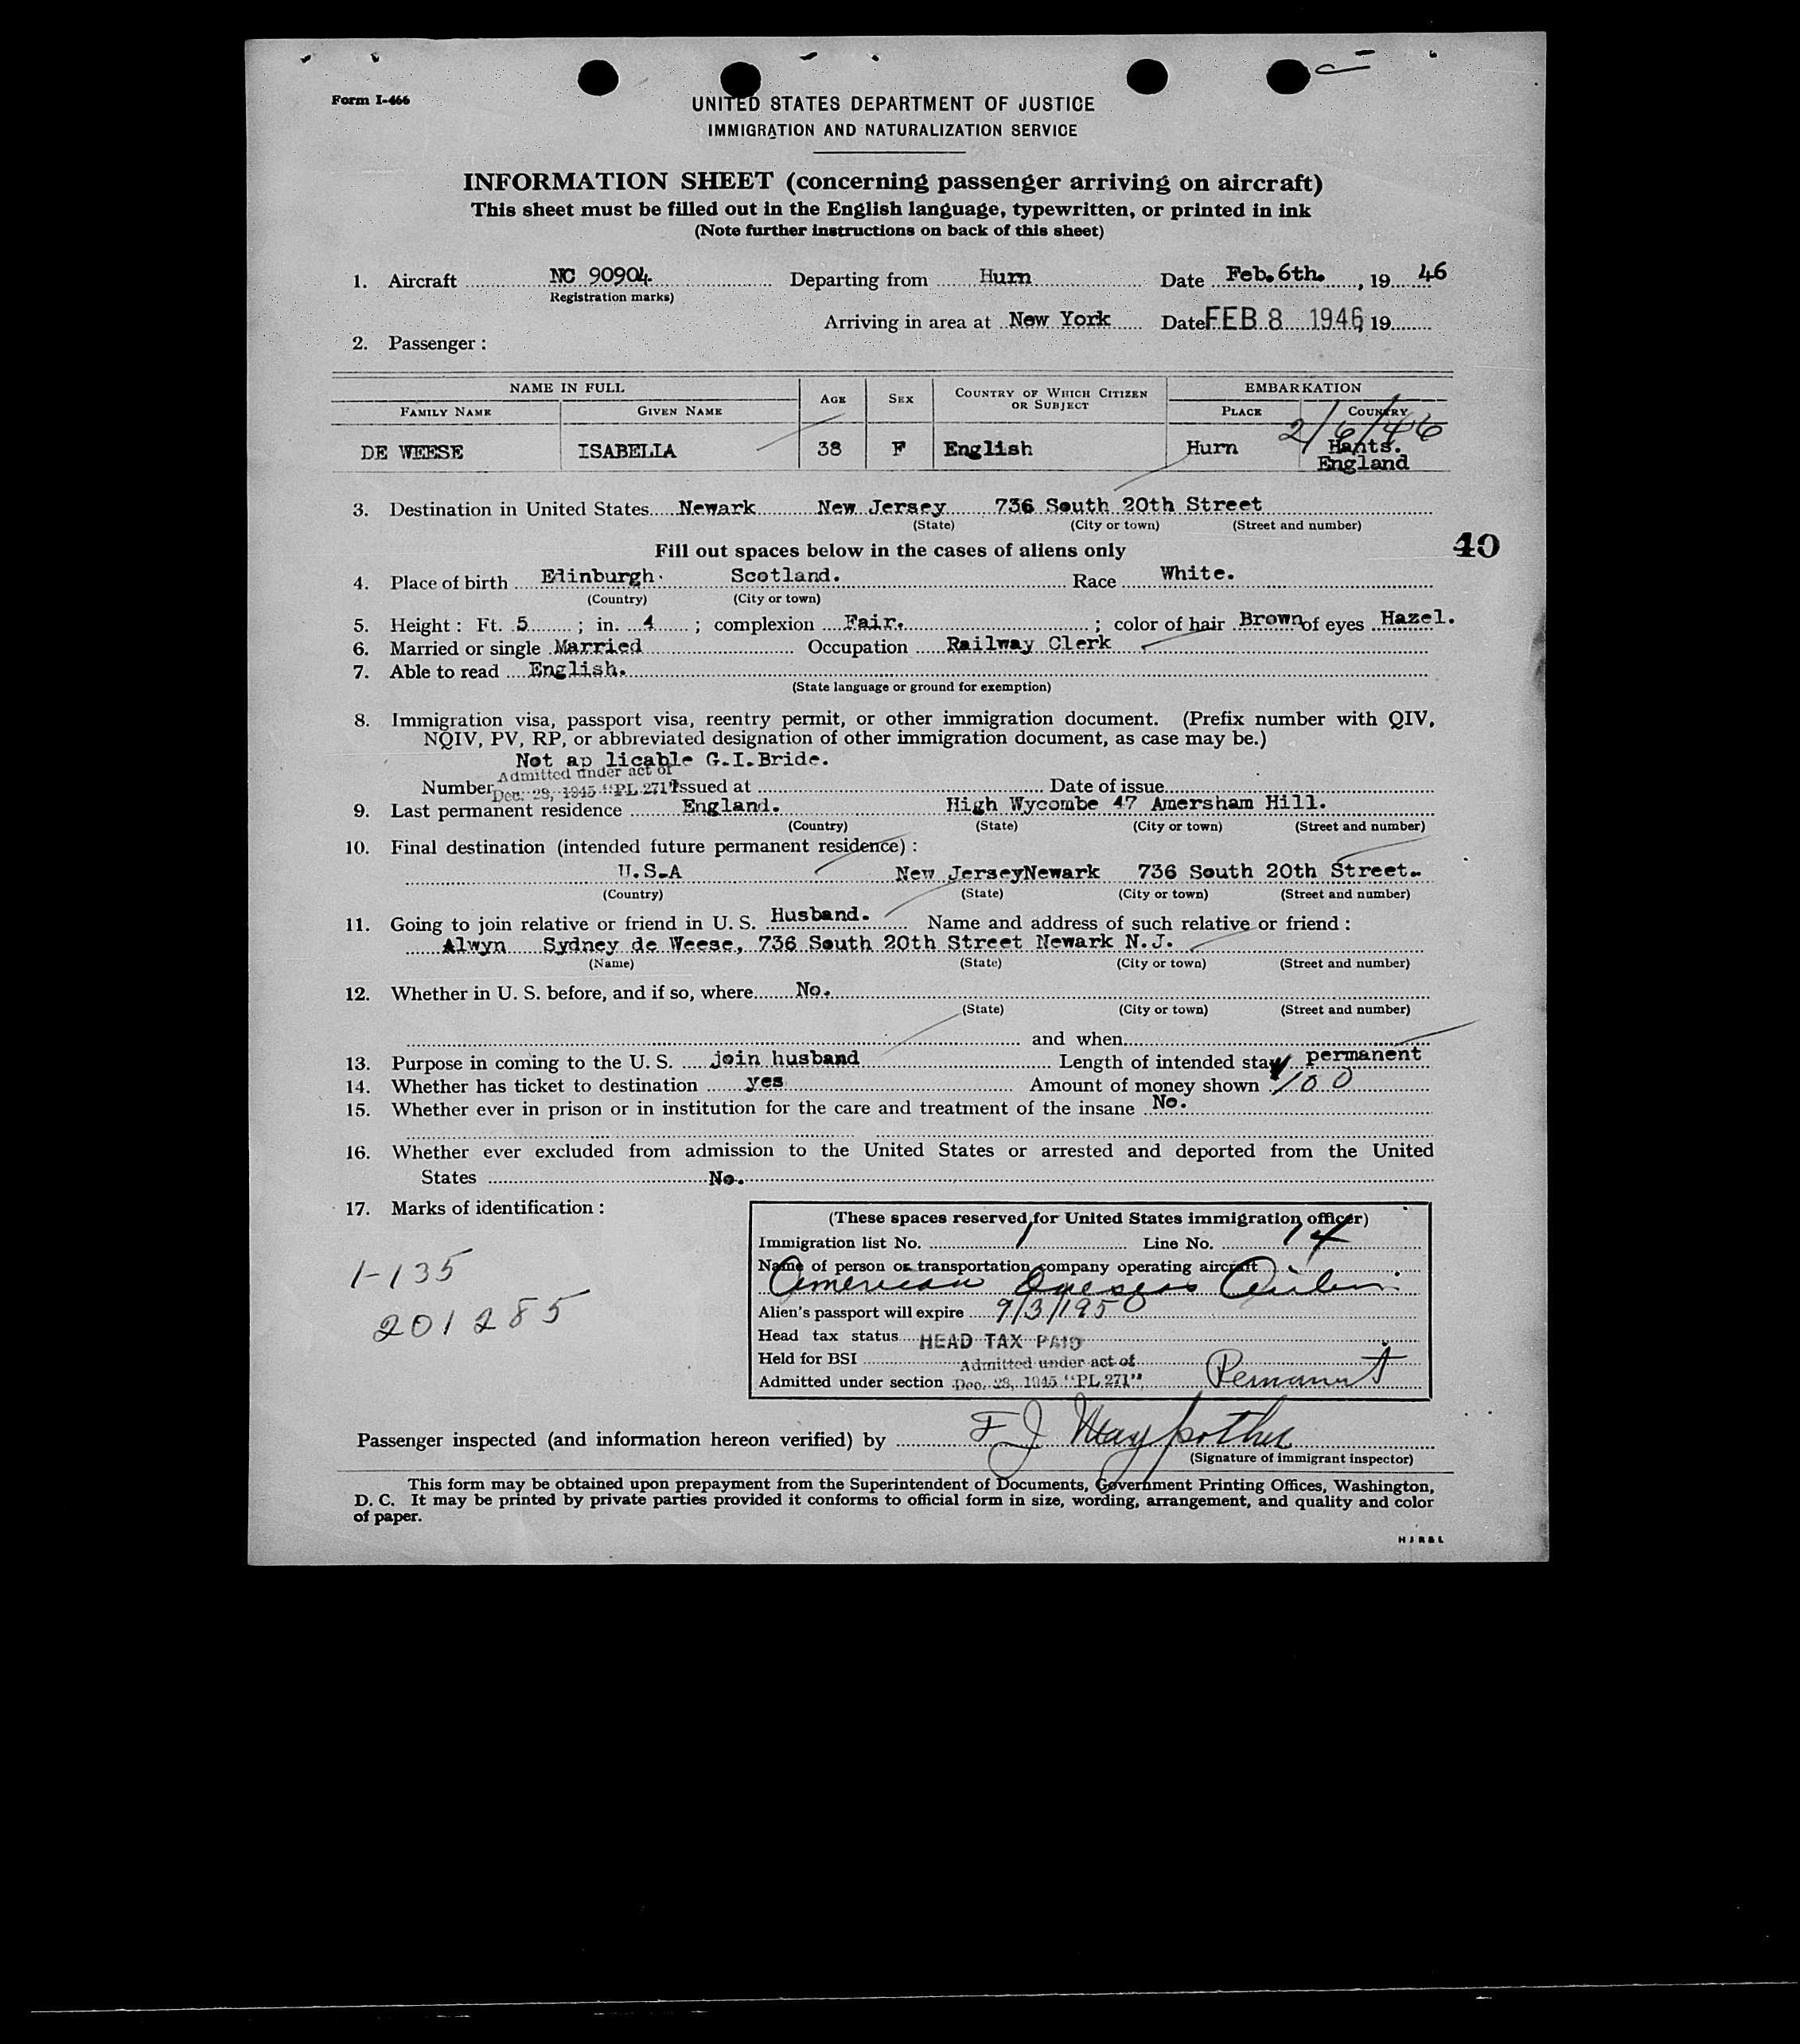 Form I-466
UNITED STATES DEPARTMENT OF JUSTICE
IMMIGRATION AND NATURALIZATION SERVICE
INFORMATION SHEET (concerning passenger arriving on aircraft)
This sheet must be filled out in the English language, typewritten, or printed in ink
(Note further instructions on back of this sheet)
1. Aircraft NC 90904. Departing from Hurn Date Feb. 6th. , 19 46
(Registration marks)
Arriving in area at New York Date FEB 8 1946, 19
2. Passenger :
NAME IN FULL AGE SEX COUNTRY OF WHICH CITIZEN OR SUBJECT EMBARKATION
FAMILY NAME GIVEN NAME PLACE COUNTRY
2/6/46
DE WEESE ISABELIA 38 F English Hurn Hants.
England
3. Destination in United States Newark New Jersey 736 South 20th Street
(State) (City or town) (Street and number)
Fill out spaces below in the cases of aliens only 40
4. Place of birth Edinburgh. Scotland. Race White.
(Country) (City or town)
5. Height : Ft. 5 ; in. 4 ; complexion Fair. ; color of hair Brown of eyes Hazel.
6. Married or single Married Occupation Railway Clerk
7. Able to read English.
(State language or ground for exemption)
8. Immigration visa, passport visa, reentry permit, or other immigration document. (Prefix number with QIV,
NQIV, PV, RP, or abbreviated designation of other immigration document, as case may be.)
Not ap licable G.I.Bride.
Admitted under act of
Number Dec. 28, 1945 "PL 271" Issued at Date of issue
9. Last permanent residence England. High Wycombe 47 Amersham Hill.
(Country) (State) (City or town) (Street and number)
10. Final destination (intended future permanent residence) :
U.S.A New JerseyNewark 736 South 20th Street.
(Country) (State) (City or town) (Street and number)
11. Going to join relative or friend in U. S. Husband. Name and address of such relative or friend :
Alwyn Sydney de Weese, 736 South 20th Street Newark N.J.
(Name) (State) (City or town) (Street and number)
12. Whether in U. S. before, and if so, where No.
(State) (City or town) (Street and number)
and when
13. Purpose in coming to the U. S. join husband Length of intended stay permanent
14. Whether has ticket to destination yes Amount of money shown 100
15. Whether ever in prison or in institution for the care and treatment of the insane No.
16. Whether ever excluded from admission to the United States or arrested and deported from the United
States No.
17. Marks of identification :
1-135
201285
(These spaces reserved for United States immigration officer)
Immigration list No. 1 Line No. 14
Name of person or transportation company operating aircraft
American Overseas Airlin
Alien's passport will expire 9/3/1950
Head tax status HEAD TAX PAID
Held for BSI Admitted under act of
Admitted under section Dec. 28, 1945 "PL 271" Permanent
Passenger inspected (and information hereon verified) by F J
(Signature of immigrant inspector)
This form may be obtained upon prepayment from the Superintendent of Documents, Government Printing Offices, Washington,
D. C. It may be printed by private parties provided it conforms to official form in size, wording, arrangement, and quality and color
of paper.
H J R & L